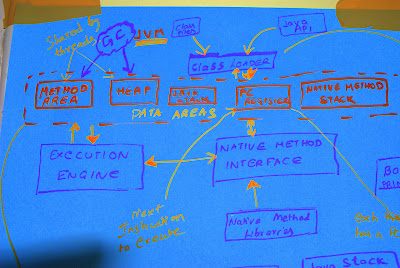 Shared by
threads
GC
JVM
Class
files
Java
API
CLASS LOADER
METHOD
AREA
HEAP
JAVA
STACK
PC
REGISTER
NATIVE METHOD
STACK
DATA AREAS
EXECUTION
ENGINE
NATIVE METHOD
INTERFACE
Next
Instruction
to Execute
Native Method
Libraries
Each
has a
Java Stack